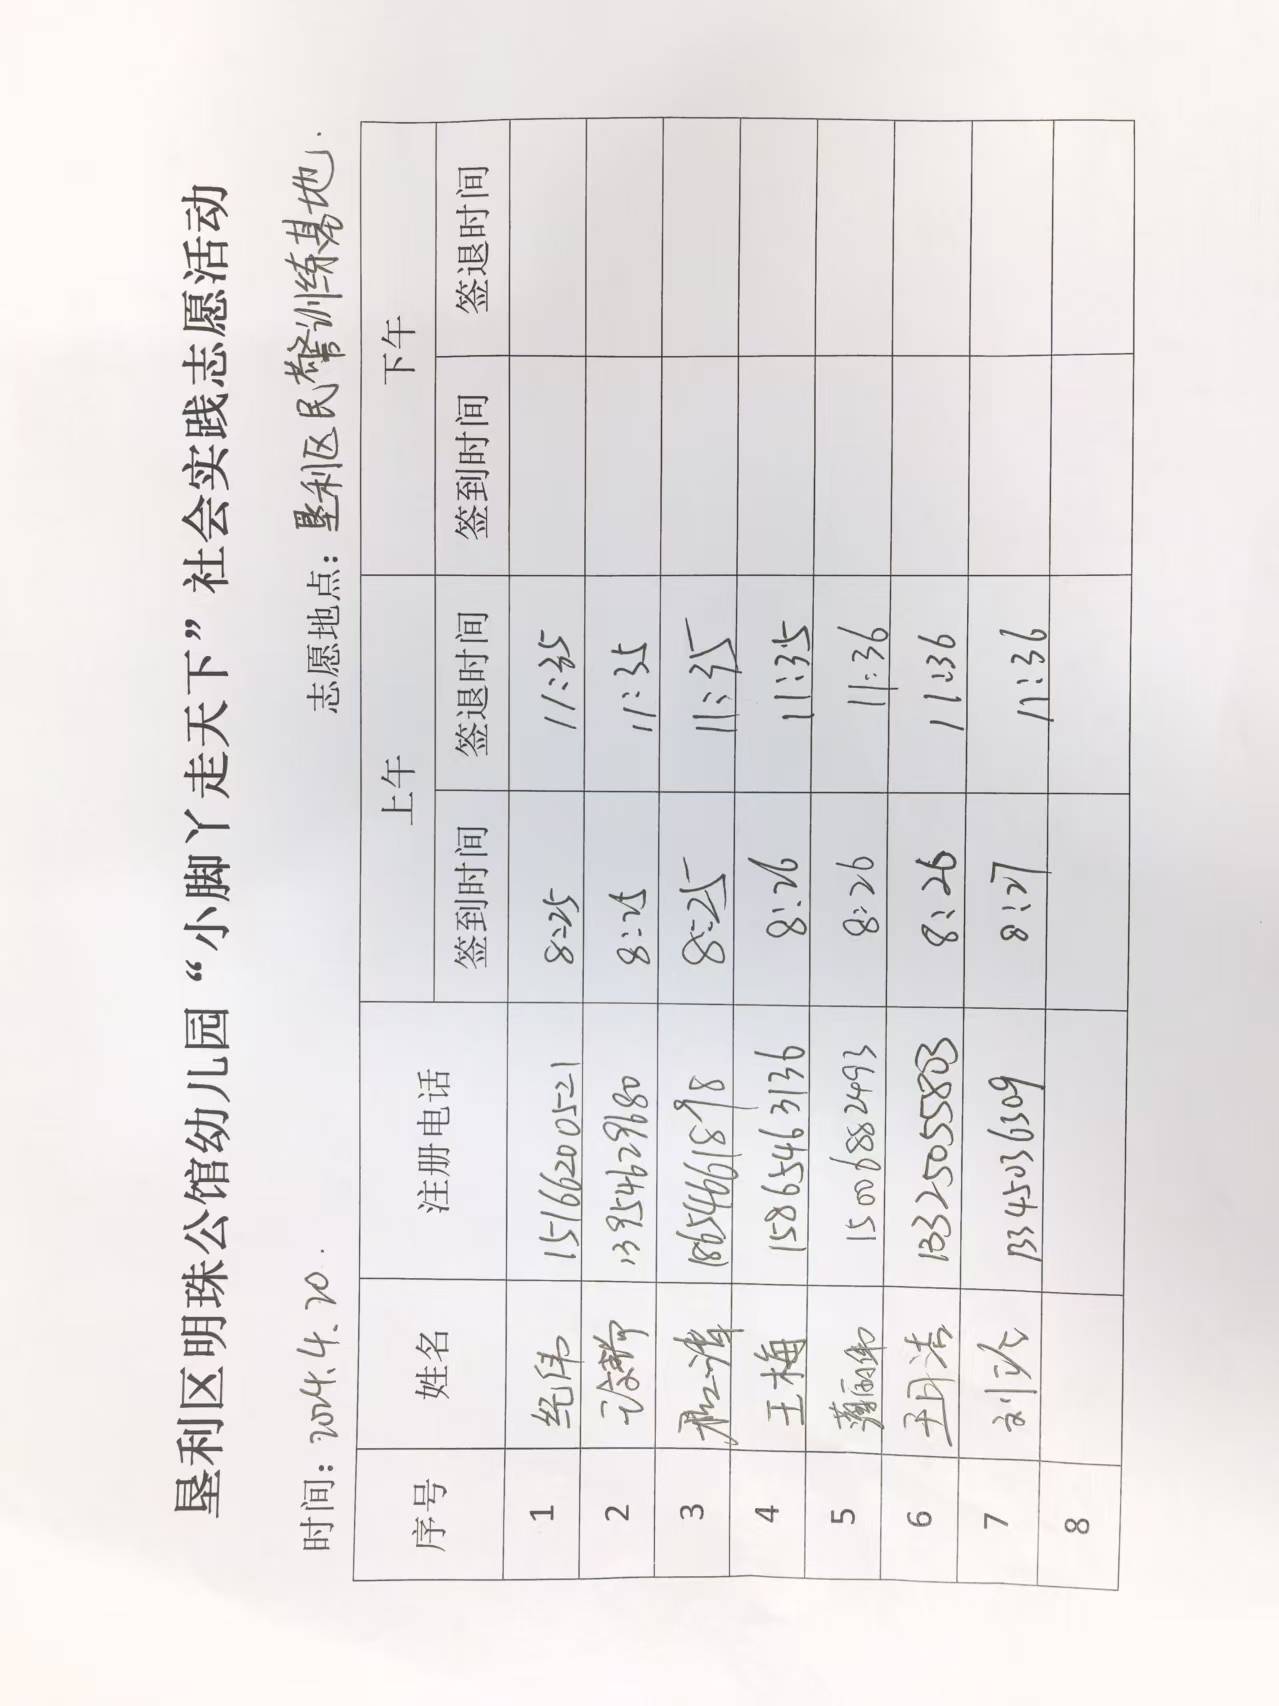 垦利区明珠公馆幼儿园“小脚丫走天下”社会实践志愿活动
时间：2024.4.20. 志愿地点：垦利区民警训练基地.
序号 姓名 注册电话 上午 下午
签到时间 签退时间 签到时间 签退时间
1 纪伟 15166200521 8:25 11:35
2 13954629680 8:25 11:35
3 18654661898 8:25 11:35
4 王梅 15865463136 8:26 11:35
5 15006882493 8:26 11:36
6 13325055803 8:26 11:36
7 13345036309 8:27 11:36
8